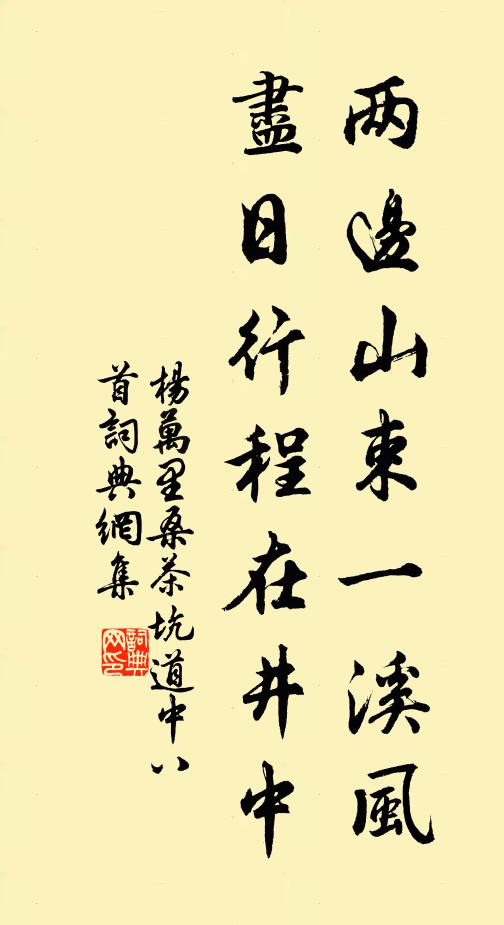 两邊山束一溪風
盡日行程在井中
楊萬里桑茶坑道中八
首詞典網集
詞典
网印